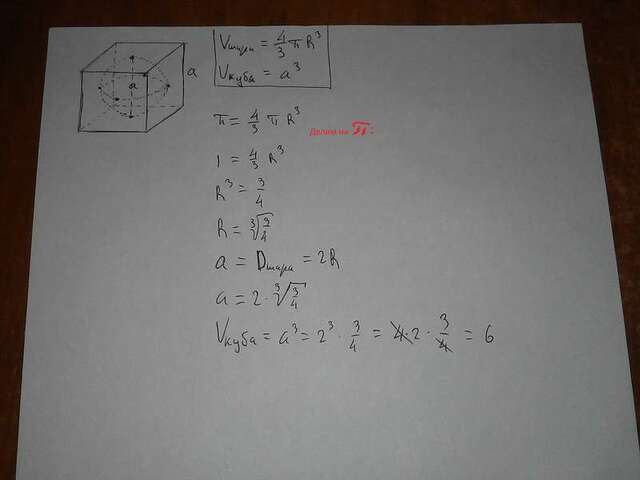 a
a
Vшара = 4/3 π R³
Vкуба = a³
π = 4/3 π R³
Делим на π:
1 = 4/3 R³
R³ = 3/4
R = ∛(3/4)
a = Dшара = 2R
a = 2 · ∛(3/4)
Vкуба = a³ = 2³ · 3/4 = 4·2 · 3/4 = 6